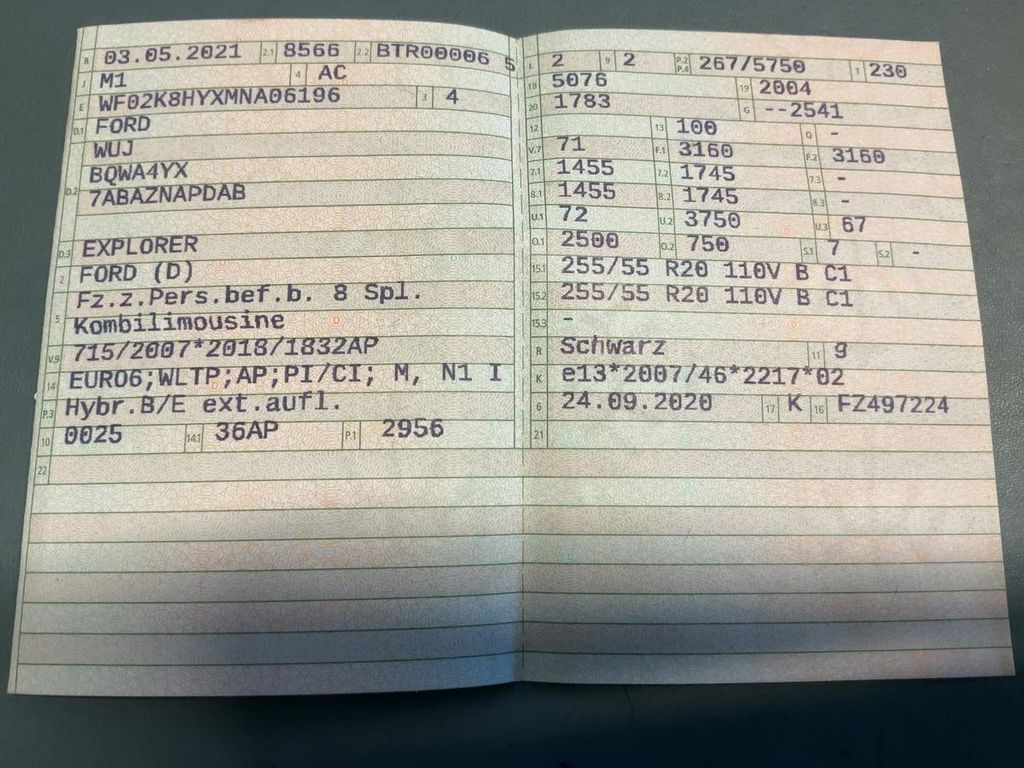 B 03.05.2021 2.1 8566 2.2 BTR00006 5
J M1 4 AC
E WF02K8HYXMNA06196 3 4
D.1 FORD
WUJ
D.2 BQWA4YX
7ABAZNAPDAB
D.3 EXPLORER
2 FORD (D)
Fz.z.Pers.bef.b. 8 Spl.
5 Kombilimousine
V.9 715/2007*2018/1832AP
14 EURO6;WLTP;AP;PI/CI; M, N1 I
P.3 Hybr.B/E ext.aufl.
10 0025 14.1 36AP P.1 2956
22
L 2 9 2 P.2 P.4 267/5750 T 230
18 5076 19 2004
20 1783 G --2541
12 13 100 Q -
V.7 71 F.1 3160 F.2 3160
7.1 1455 7.2 1745 7.3 -
8.1 1455 8.2 1745 8.3 -
U.1 72 U.2 3750 U.3 67
O.1 2500 O.2 750 S.1 7 S.2 -
15.1 255/55 R20 110V B C1
15.2 255/55 R20 110V B C1
15.3 -
R Schwarz 11 9
K e13*2007/46*2217*02
6 24.09.2020 17 K 16 FZ497224
21